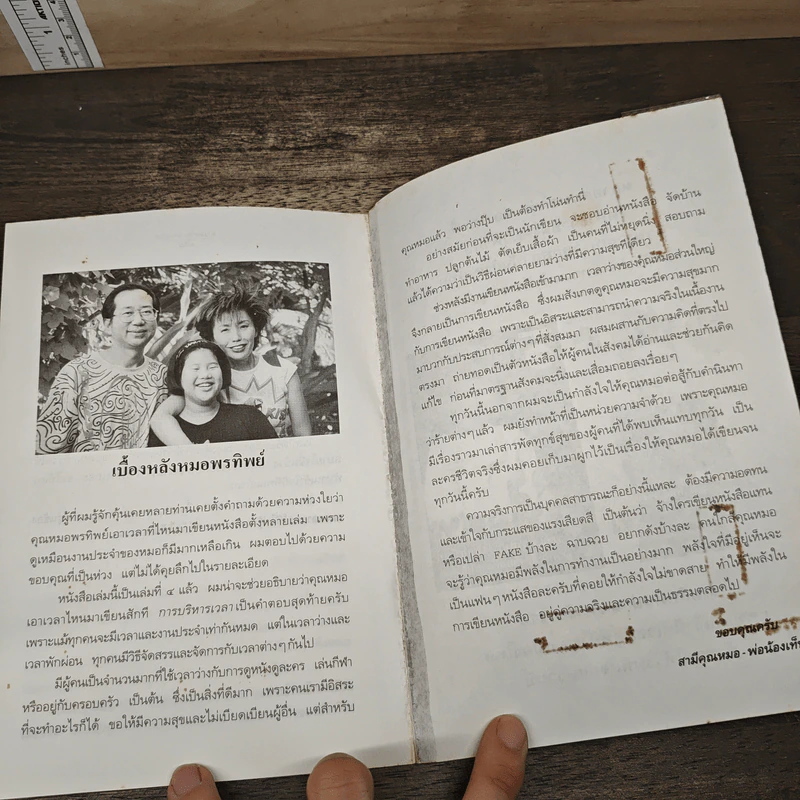 เบื้องหลังหมอพรทิพย์
ผู้ที่ผมรู้จักคุ้นเคยหลายท่านเคยตั้งคำถามด้วยความห่วงใยว่า
คุณหมอพรทิพย์เอาเวลาที่ไหนมาเขียนหนังสือตั้งหลายเล่ม เพราะ
ดูเหมือนงานประจำของหมอก็มีมากเหลือเกิน ผมตอบไปด้วยความ
ขอบคุณที่เป็นห่วง แต่ไม่ได้คุยลึกไปในรายละเอียด
หนังสือเล่มนี้เป็นเล่มที่ ๔ แล้ว ผมน่าจะช่วยอธิบายว่าคุณหมอ
เอาเวลาไหนมาเขียนสักที การบริหารเวลา เป็นคำตอบสุดท้ายครับ
เพราะแม้ทุกคนจะมีเวลาและงานประจำเท่ากันหมด แต่ในเวลาว่างและ
เวลาพักผ่อน ทุกคนมีวิธีจัดสรรและจัดการกับเวลาต่างๆ กันไป
มีผู้คนเป็นจำนวนมากที่ใช้เวลาว่างกับการดูหนังดูละคร เล่นกีฬา
หรืออยู่กับครอบครัว เป็นต้น ซึ่งเป็นสิ่งที่ดีมาก เพราะคนเรามีอิสระ
ที่จะทำอะไรก็ได้ ขอให้มีความสุขและไม่เบียดเบียนผู้อื่น แต่สำหรับ
คุณหมอแล้ว พอว่างปุ๊บ เป็นต้องทำโน่นทำนี่
อย่างสมัยก่อนที่จะเป็นนักเขียน จะชอบอ่านหนังสือ จัดบ้าน
ทำอาหาร ปลูกต้นไม้ ตัดเย็บเสื้อผ้า เป็นคนที่ไม่หยุดนิ่ง สอบถาม
แล้วได้ความว่าเป็นวิธีผ่อนคลายยามว่างที่มีความสุขทีเดียว
ช่วงหลังมีงานเขียนหนังสือเข้ามามาก เวลาว่างของคุณหมอส่วนใหญ่
จึงกลายเป็นการเขียนหนังสือ ซึ่งผมสังเกตดูคุณหมอจะมีความสุขมาก
กับการเขียนหนังสือ เพราะเป็นอิสระและสามารถนำความจริงในเนื้องาน
มาบวกกับประสบการณ์ต่างๆ ที่สั่งสมมา ผสมผสานกับความคิดที่ตรงไป
ตรงมา ถ่ายทอดเป็นตัวหนังสือให้ผู้คนในสังคมได้อ่านและช่วยกันคิด
แก้ไข ก่อนที่มาตรฐานสังคมจะนิ่งและเสื่อมถอยลงเรื่อยๆ
ทุกวันนี้นอกจากผมจะเป็นกำลังใจให้คุณหมอต่อสู้กับคำนินทา
ว่าร้ายต่างๆ แล้ว ผมยังทำหน้าที่เป็นหน่วยความจำด้วย เพราะคุณหมอ
มีเรื่องราวมาเล่าสารพัดทุกข์สุขของผู้คนที่ได้พบเห็นแทบทุกวัน เป็น
ละครชีวิตจริงซึ่งผมคอยเก็บมาผูกไว้เป็นเรื่องให้คุณหมอได้เขียนจน
ทุกวันนี้ครับ
ความจริงการเป็นบุคคลสาธารณะก็อย่างนี้แหละ ต้องมีความอดทน
และเข้าใจกับกระแสของแรงเสียดสี เป็นต้นว่า จ้างใครเขียนหนังสือแทน
หรือเปล่า FAKE บ้างละ ฉาบฉวย อยากดังบ้างละ คนใกล้คุณหมอ
จะรู้ว่าคุณหมอมีพลังในการทำงานเป็นอย่างมาก พลังใจที่มีอยู่เห็นจะ
เป็นแฟนๆ หนังสือละครับที่คอยให้กำลังใจไม่ขาดสาย ทำให้มีพลังใน
การเขียนหนังสือ อยู่คู่ความจริงและความเป็นธรรมตลอดไป
ขอบคุณครับ
สามีคุณหมอ - พ่อน้องเท็น